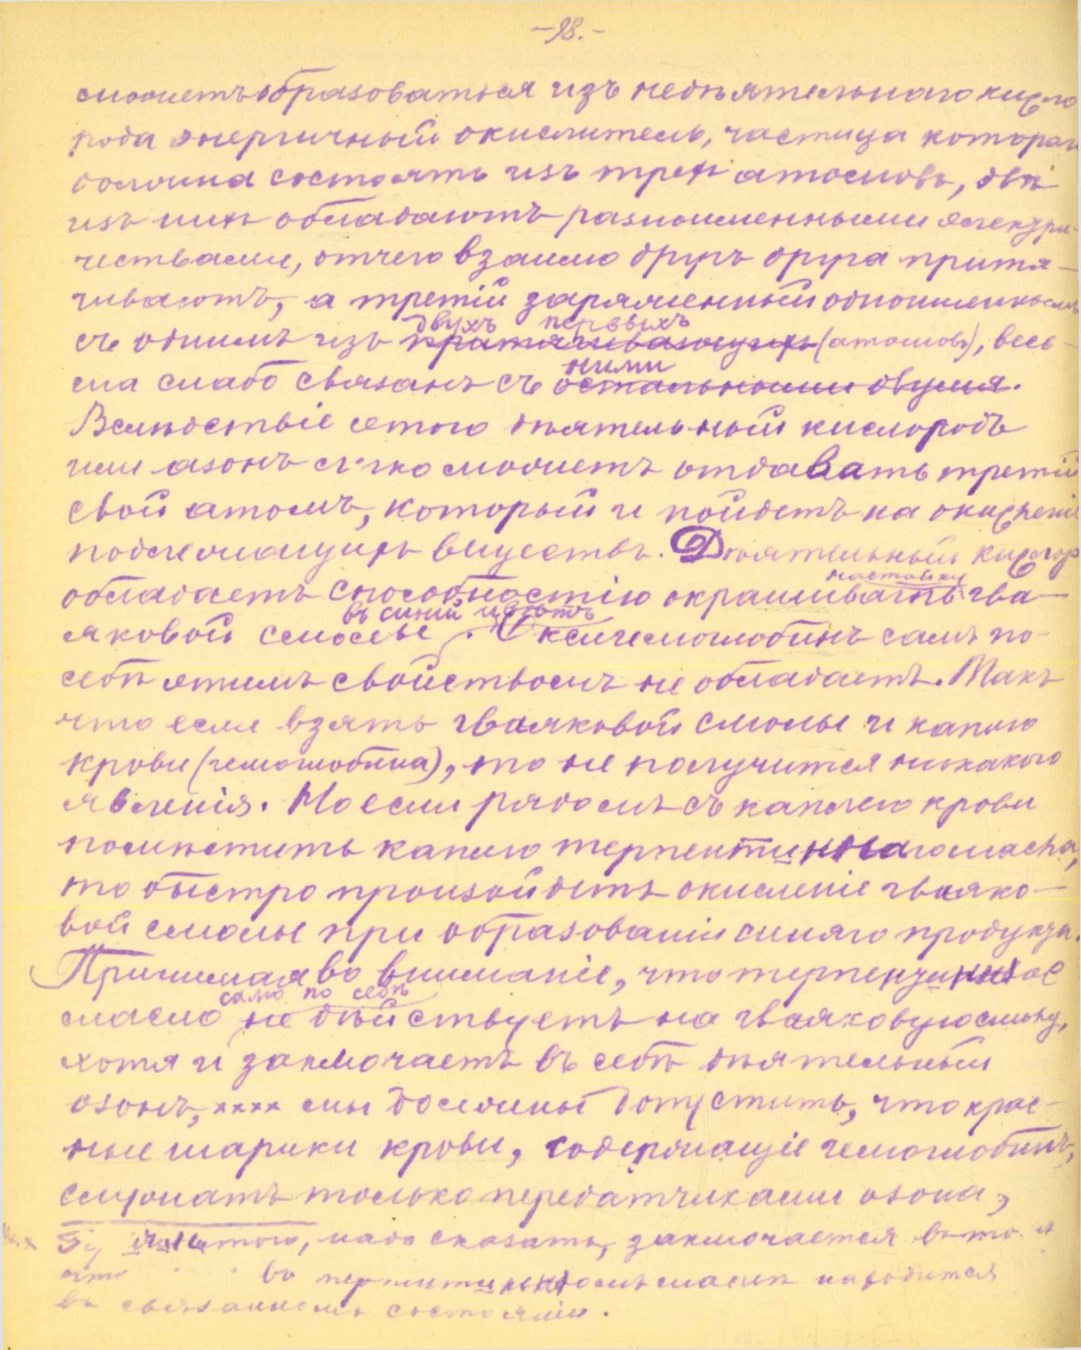 -98.-
можетъ образоваться изъ недѣятельнаго кисло
рода энергичный окислитель, частица котораго
должна состоять изъ трехъ атомовъ, двѣ
изъ нихъ обладаютъ разноименными электри-
чествами, отчего взаимно другъ друга притя-
гиваютъ, а третій заряженный одноименным
съ однимъ изъ двухъ первыхъ притягивающихъ (атомовъ), весь-
ма слабо связанъ съ ними остальными двумя.
Вслѣдствіе этого дѣятельный кислородъ
или азонъ легко можетъ отдавать третій
свой атомъ, который и пойдетъ на окисленіе
подлежащихъ веществъ. Дѣятельный кислор
обладаетъ способностію окрашивать настойку гва-
яковой смолы въ синій цвѣтъ. Оксигемоглобинъ самъ по
себѣ этимъ свойствомъ не обладаетъ. Такъ
что если взять гваяковой смолы и каплю
крови (гемоглобина), то не получится никакого
явленія. Но если рядомъ съ каплею крови
помѣстить каплю терпентиннаго масла,
то быстро произойдетъ окисленіе гваяко-
вой смолы при образованіи синяго продукта.
Принимая во вниманіе, что терпентинное
масло само по себѣ не дѣйствуетъ на гваяковую смолу,
хотя и заключаетъ въ себѣ дѣятельный
озонъ, хххх мы должны допустить, что крас-
ные шарики крови, содержащіе гемоглобинъ,
служатъ только передатчиками озона,
этого, надо сказать, заключается въ то
что въ терпентинномъ маслѣ находится
въ связанномъ состояніи.